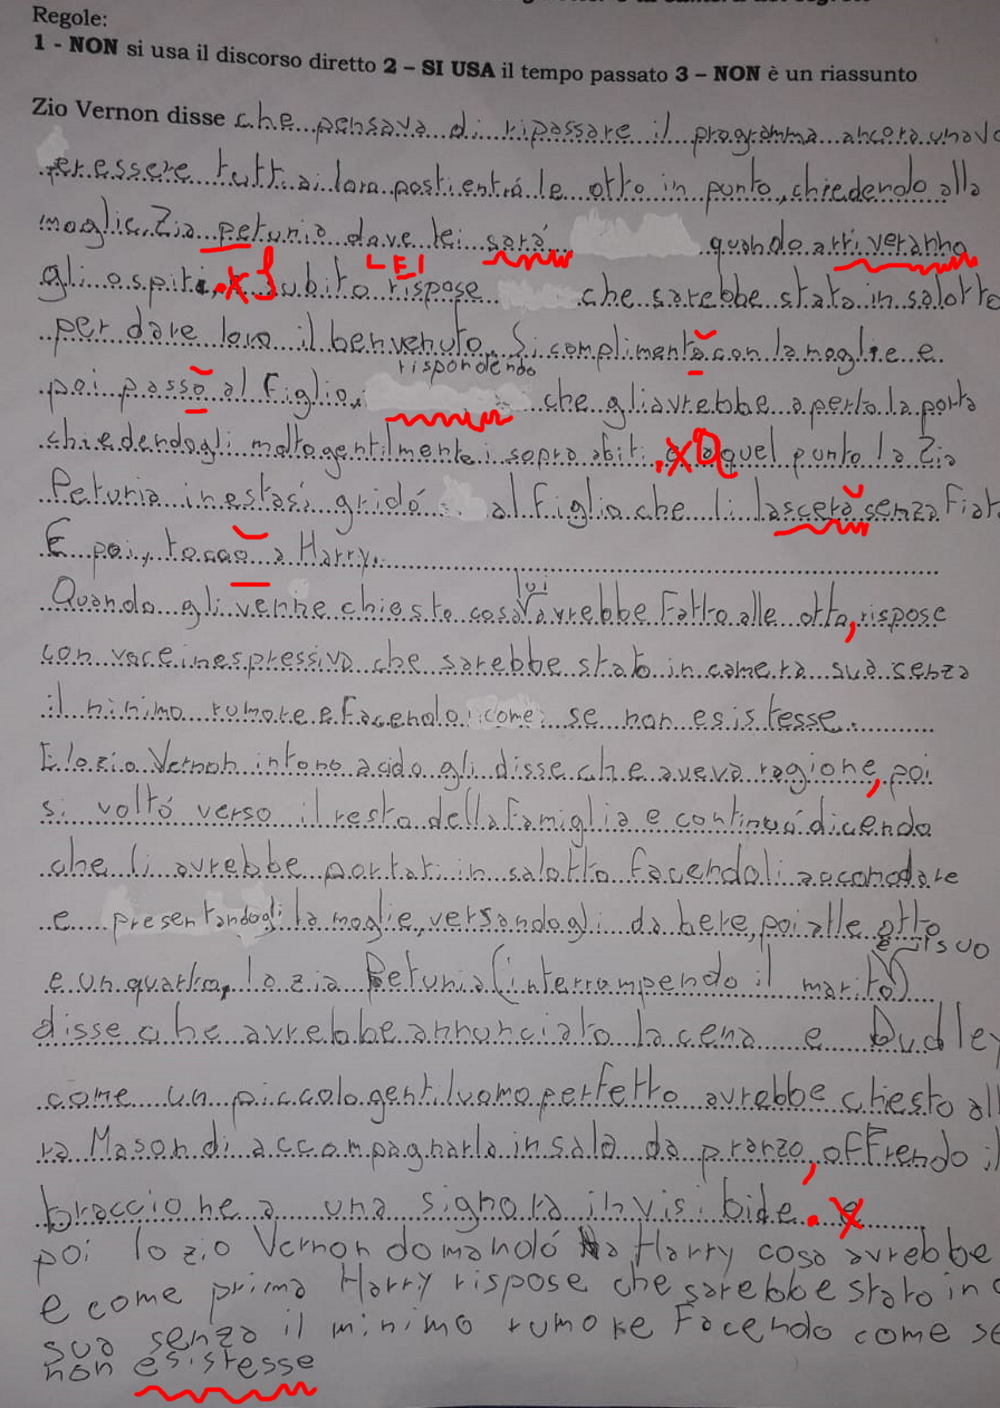 Regole:
1 - NON si usa il discorso diretto 2 – SI USA il tempo passato 3 – NON è un riassunto
Zio Vernon disse che pensava di ripassare il programma ancora una vo
per essere tutti ai loro posti entrá le otto in punto, chiedendo alla
moglie, Zia petunia dove lei sará quando arriveranno
gli ospiti. x S subito LEI rispose che sarebbe stata in salotto
per dare loro il benvenuto. Si complimentò con la moglie e
poi passò al figlio, rispondendo che gli avrebbe aperto la porta
chiedendogli molto gentilmente i soprabiti. x a quel punto la Zia
Petunia in estasi gridó al figlio che li lascerà senza fiat
E poi, toccò a Harry.
Quando gli venne chiesto cosa lui avrebbe fatto alle otto, rispose
con voce inespressiva che sarebbe stato in camera sua senza
il minimo rumore e facendo come se non esistesse.
E lo zio Vernon in tono acido gli disse che aveva ragione, poi
si voltó verso il resto della famiglia e continuó dicendo
che li avrebbe portati in salotto facendoli accomodare
e presentandogli la moglie, versandogli da bere, poi alle otto
e un quarto, la zia Petunia (interrompendo il suo marito)
disse che avrebbe annunciato la cena e Dudley
come un piccolo gentiluomo perfetto avrebbe chiesto all
ra Mason di accompagnarla in sala da pranzo, offrendo il
braccio he a una signora invisibile. x
poi lo zio Vernon domandó a Harry cosa avrebbe
e come prima Harry rispose che sarebbe stato in c
sua senza il minimo rumore facendo come se
non esistesse